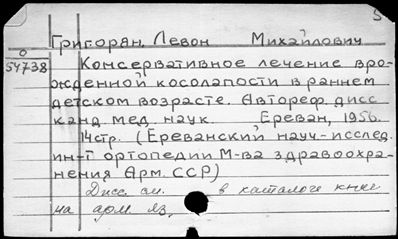 5
Григорян, Левон Михайлович
0
54738
Консервативное лечение вро-
жденной косолапости в раннем
детском возрасте. Автореф. дисс
канд мед. наук. Ереван, 1956.
14стр. (Ереванский науч-исслед.
ин-т ортопедии М-ва здравоохра-
нения Арм. ССР)
Дисс. см. в каталоге книг
на арм. яз.